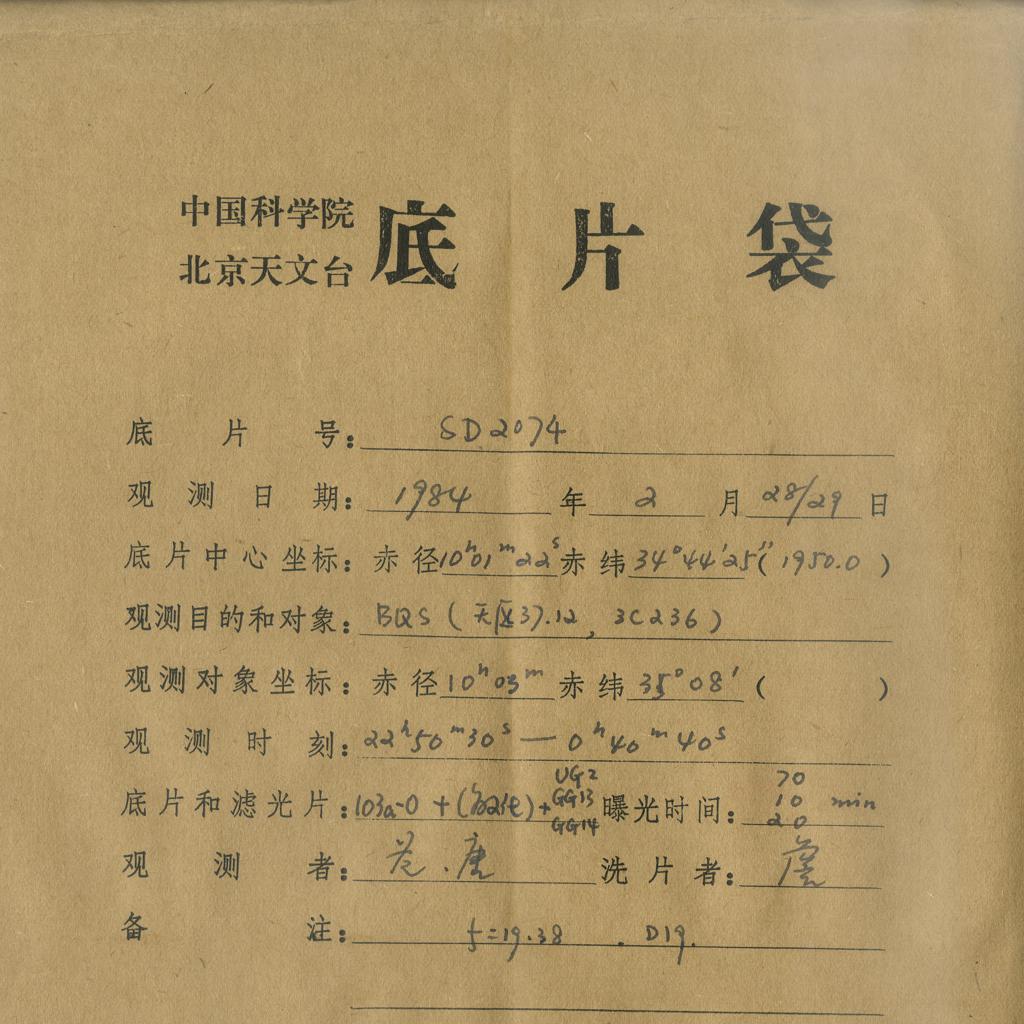 中国科学院
北京天文台
底片袋
底片号: SD2074
观测日期: 1984年2月28/29日
底片中心坐标: 赤径10ʰ01ᵐ22ˢ赤纬34°44′25″(1950.0)
观测目的和对象: BQS (天区37.12, 3C236)
观测对象坐标: 赤径10ʰ03ᵐ赤纬35°08′( )
观测时刻: 22ʰ50ᵐ30ˢ — 0ʰ40ᵐ40ˢ
底片和滤光片: 103a-O + (敏化) + UG2 GG13 GG14 曝光时间: 70 10 20 min
观测者: 洗片者:
备注: =19.38 . D19.